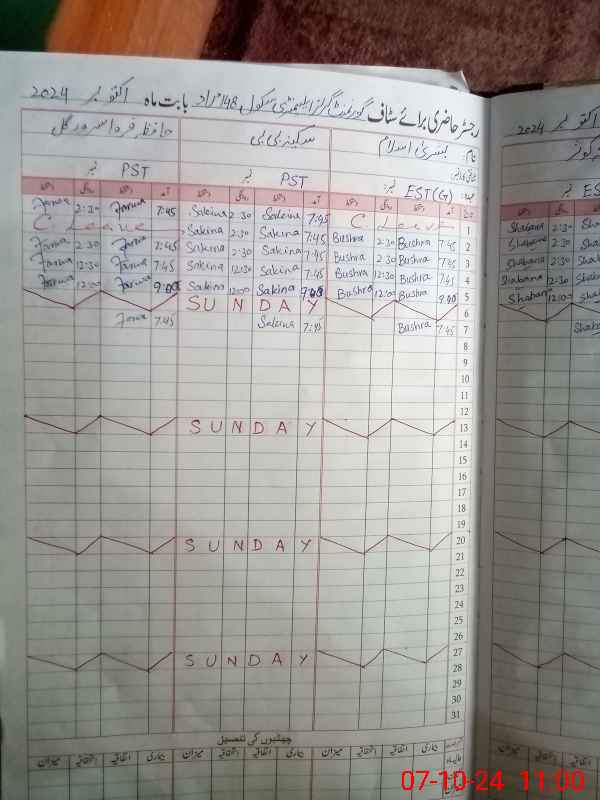 رجسٹر حاضری برائے سٹاف گورنمنٹ گرلز ایلیمنٹری سکول 148 مراد بابت ماہ اکتوبر 2024
نام: بشریٰ اسلام سکینہ بی بی حافظہ فروا سرور گل
عہدہ: EST(G) نمبر PST نمبر PST نمبر
تاریخ آمد دستخط روانگی دستخط آمد دستخط روانگی دستخط آمد دستخط روانگی دستخط
1 C. Leave 7:45 Sakina 2:30 Sakina 7:45 Farwa 2:30 Farwa
2 7:45 Bushra 2:30 Bushra 7:45 Sakina 2:30 Sakina C. Leave
3 7:45 Bushra 2:30 Bushra 7:45 Sakina 2:30 Sakina 7:45 Farwa 2:30 Farwa
4 7:45 Bushra 12:30 Bushra 7:45 Sakina 12:30 Sakina 7:45 Farwa 12:30 Farwa
5 9:00 Bushra 12:00 Bushra 9:00 Sakina 12:00 Sakina 9:00 Farwa 12:00 Farwa
6 SUNDAY
7 7:45 Bushra 7:45 Sakina 7:45 Farwa
8
9
10
11
12
13 SUNDAY
14
15
16
17
18
19
20 SUNDAY
21
22
23
24
25
26
27 SUNDAY
28
29
30
31
چھٹیوں کی تفصیل
بیماری اتفاقیہ میزان بیماری اتفاقیہ میزان بیماری اتفاقیہ میزان
اکتوبر 2024
کوثر
ES
Shabana 2:30 Sha
Shabana 2:30 Sha
Shabana 2:30 Sha
Shabana 12:30 Sha
Shabana 12:00 Sha
Shaba
07-10-24 11:00